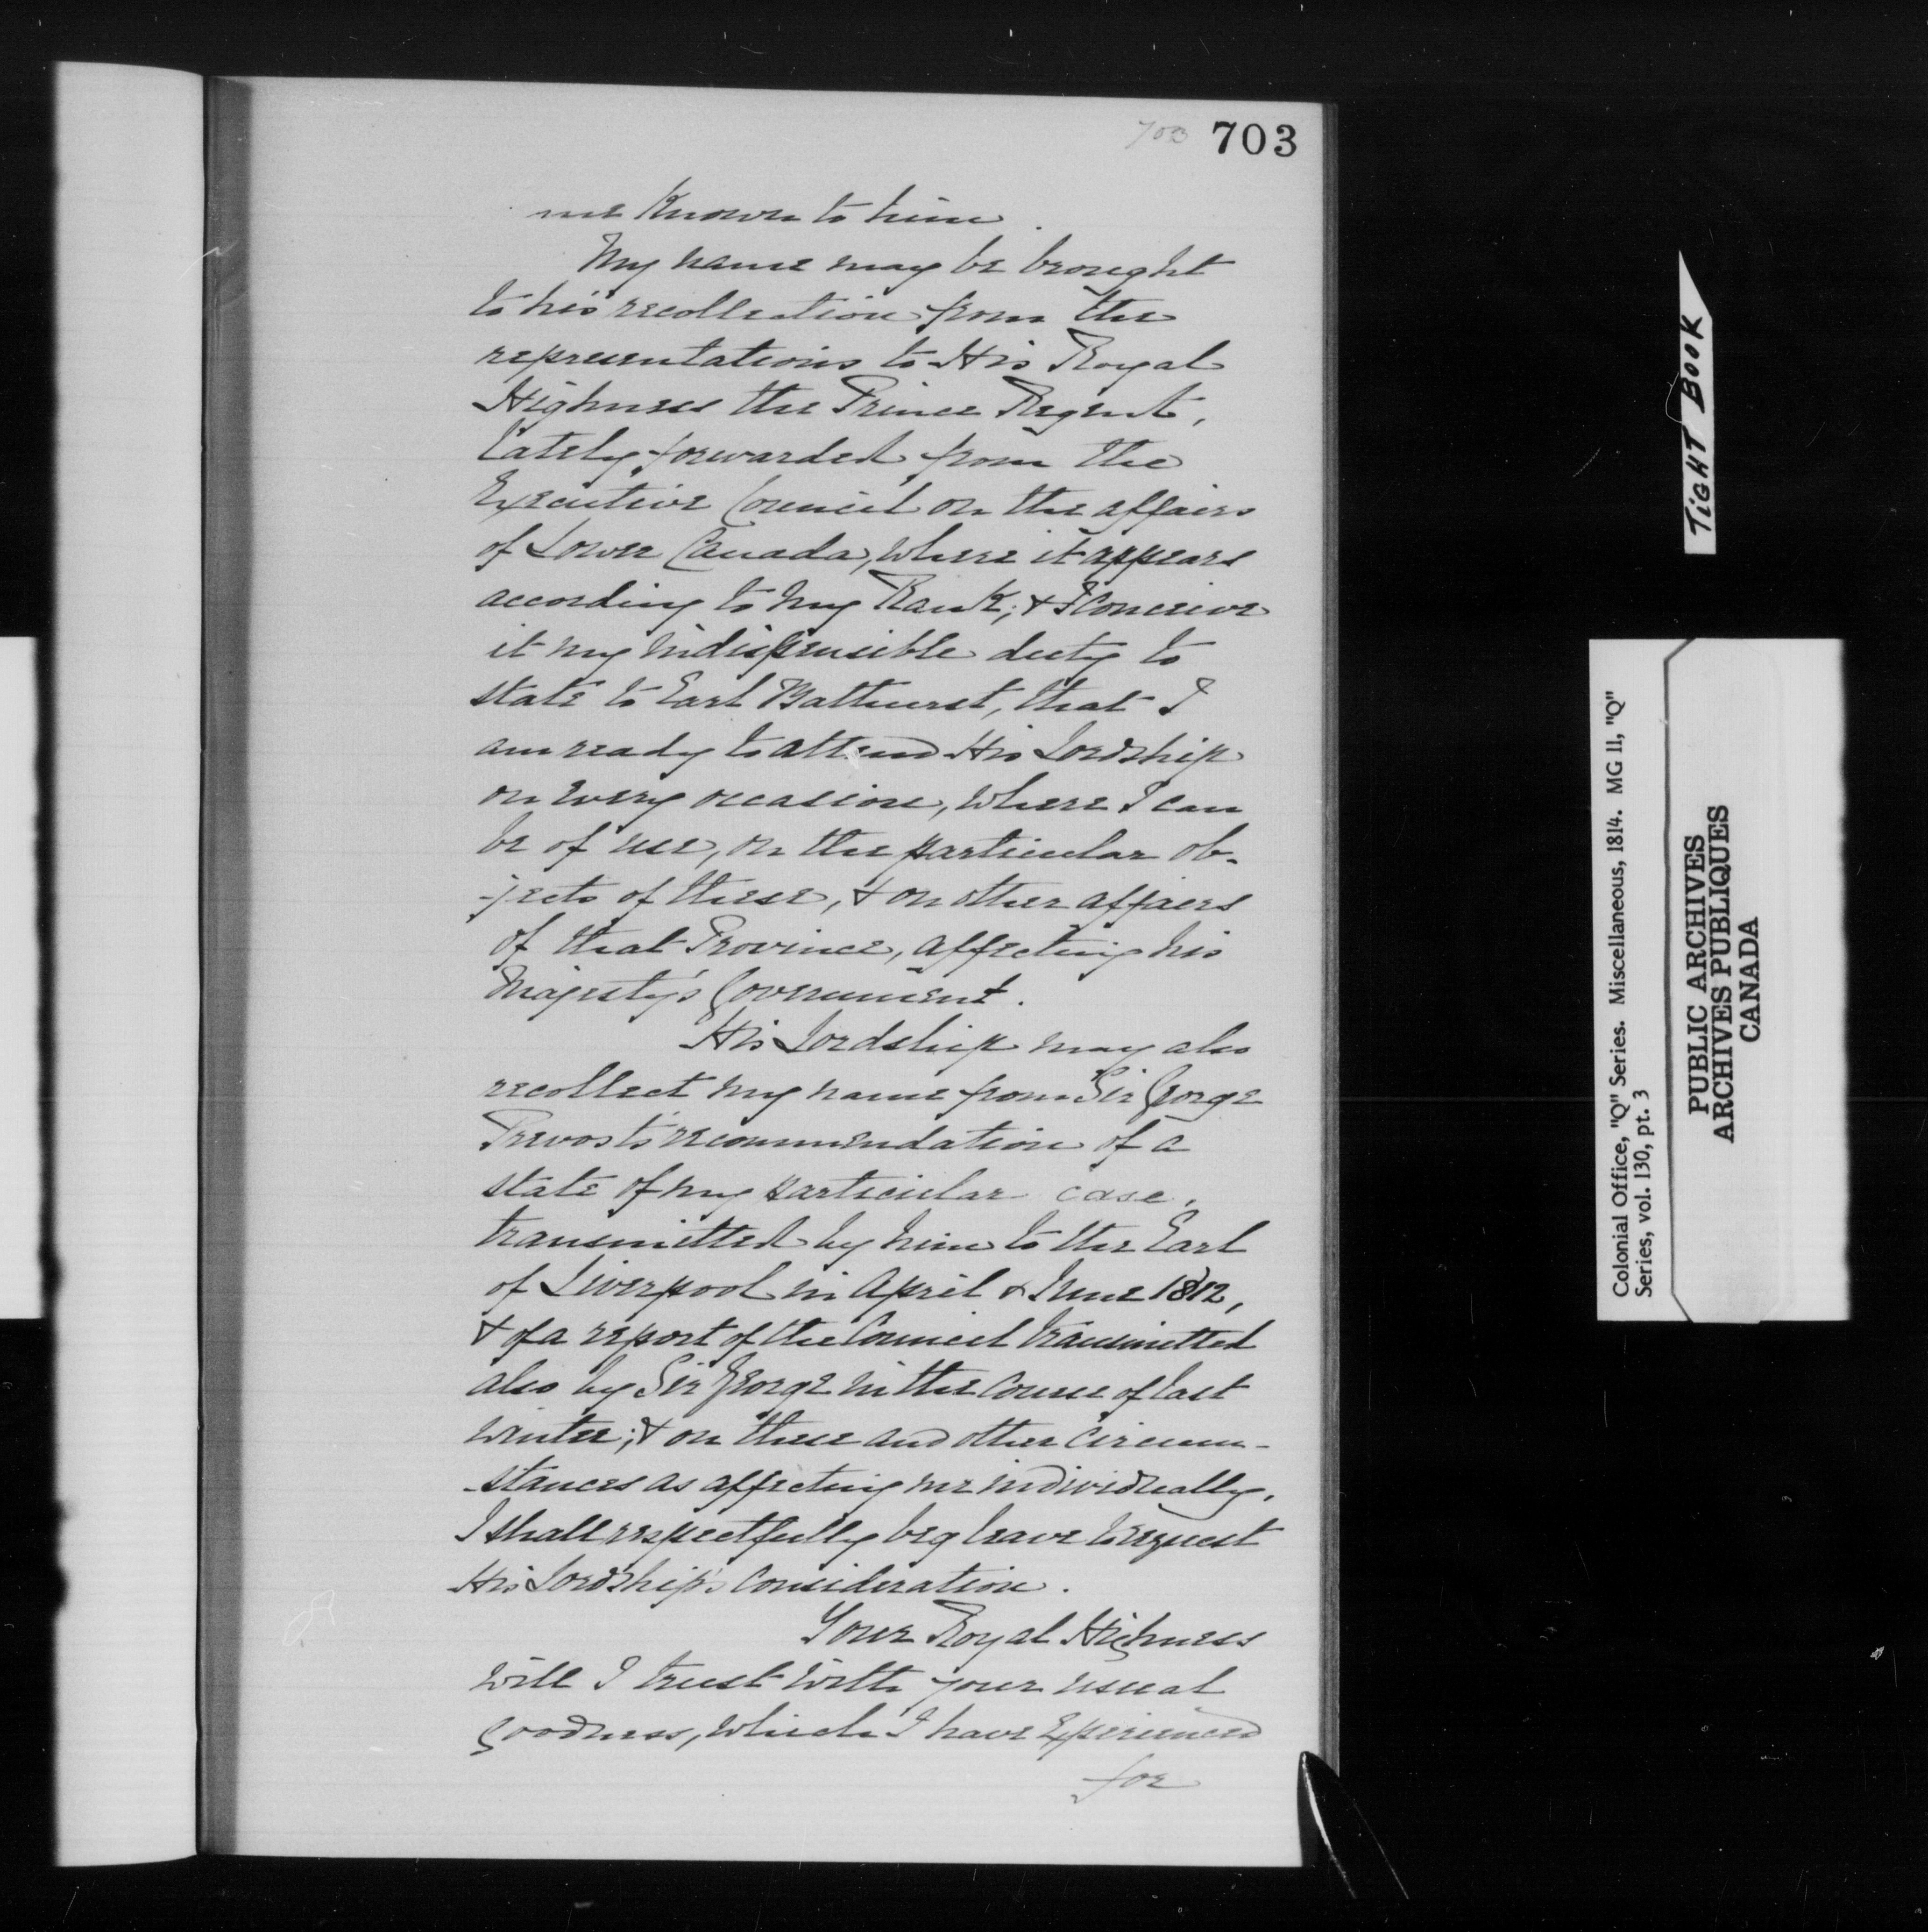 703 703
me Known to him.
My name may be brought
to his recollection from the
representations to His Royal
Highness the Prince Regent,
lately forwarded from the
Executive Council on the affairs
of Lower Canada, where it appears
according to my Rank; & I conceive
it my indispensible duty to
state to Earl Bathurst, that I
am ready to attend His Lordship
on every occasion, where I can
be of use, on the particular ob-
-jects of these, & on other affairs
of that Province, affecting his
Majesty's Government.
His Lordship may also
recollect my name from Sir George
Prevost's recommendation of a
state of my particular case,
transmitted by him to the Earl
of Liverpool in April & June 1812,
& of a report of the Council transmitted
also by Sir George in the course of last
winter; & on these and other circum-
-stances as affecting me individually,
I shall respectfully beg leave to request
His Lordship's consideration.
Your Royal Highness
will I trust with your usual
goodness, which I have experienced
for
TIGHT BOOK
Colonial Office, "Q" Series. Miscellaneous, 1814. MG 11, "Q"
Series, vol. 130, pt. 3
PUBLIC ARCHIVES
ARCHIVES PUBLIQUES
CANADA